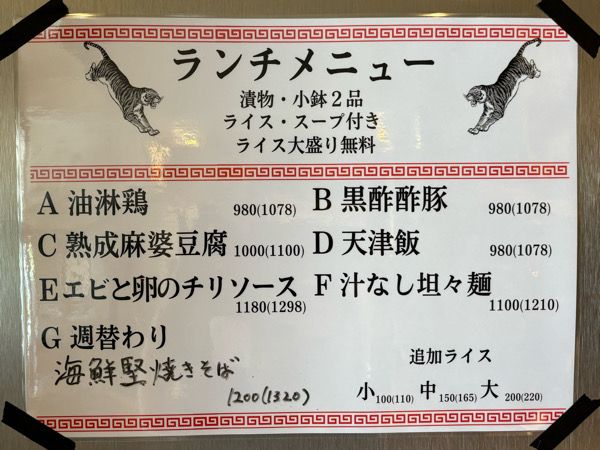 ランチメニュー
漬物・小鉢2品
ライス・スープ付き
ライス大盛り無料
A 油淋鶏 980(1078) B 黒酢酢豚 980(1078)
C 熟成麻婆豆腐 1000(1100) D 天津飯 980(1078)
E エビと卵のチリソース 1180(1298) F 汁なし坦々麺 1100(1210)
G 週替わり
海鮮堅焼きそば 1200(1320)
追加ライス
小100(110) 中150(165) 大200(220)